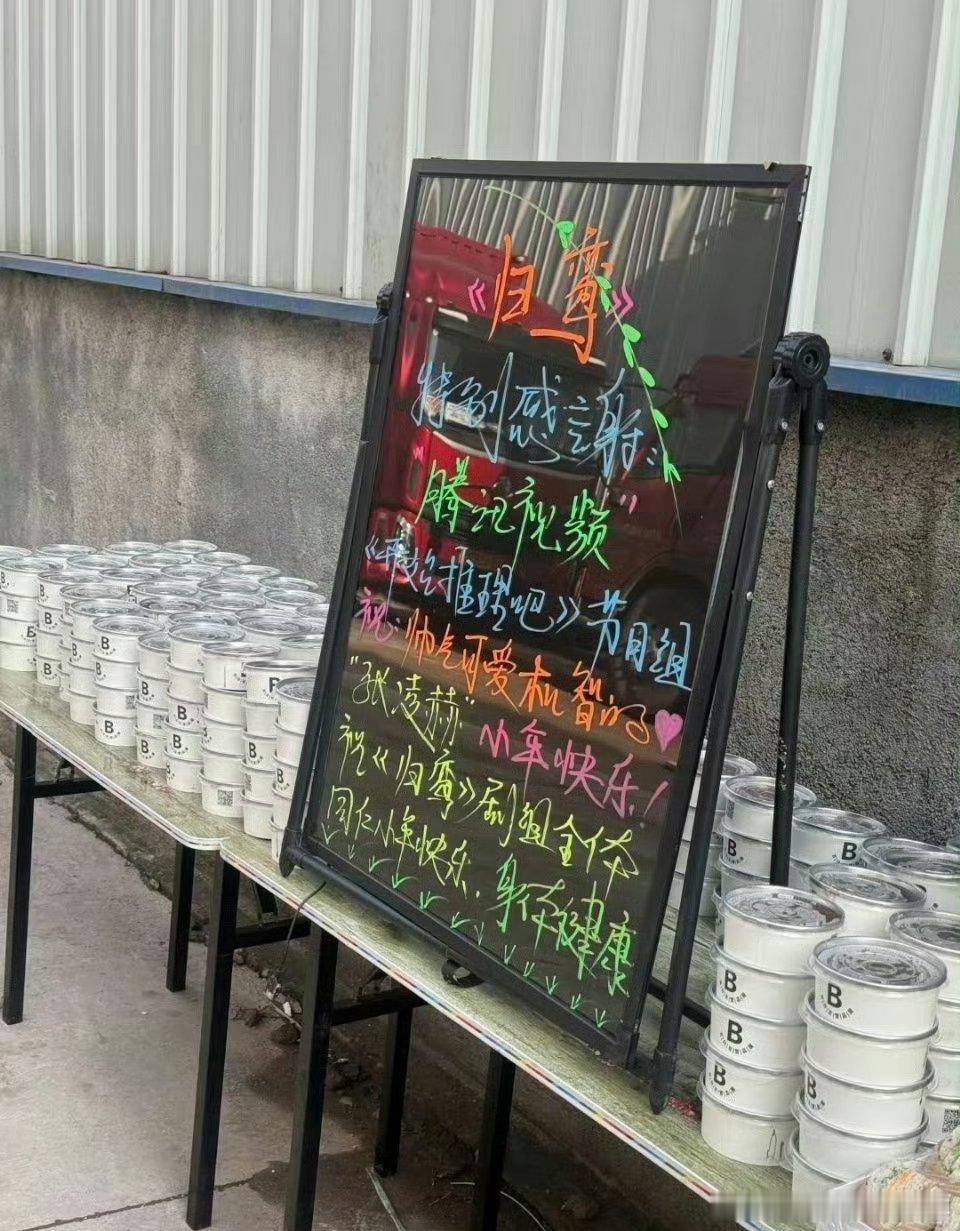 《归鸾》
特别感谢:
腾讯视频"
《开始推理吧》节目组
祝:帅气可爱机智的
"张凌赫"小年快乐!
祝《归鸾》剧组全体
同仁小年快乐.身体健康
B